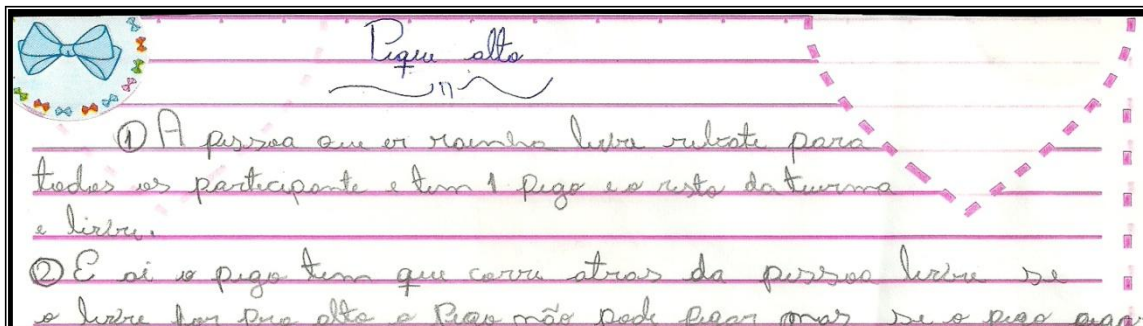 Pique alto
① A pessoa que er rainha livre rebate para
todos os participante e tem 1 pego e o resto da turma
e livre.
② E ai o pego tem que corre atras da pessoa livre se
o livre for pro alto o Pego não pode pegar mas se o pego